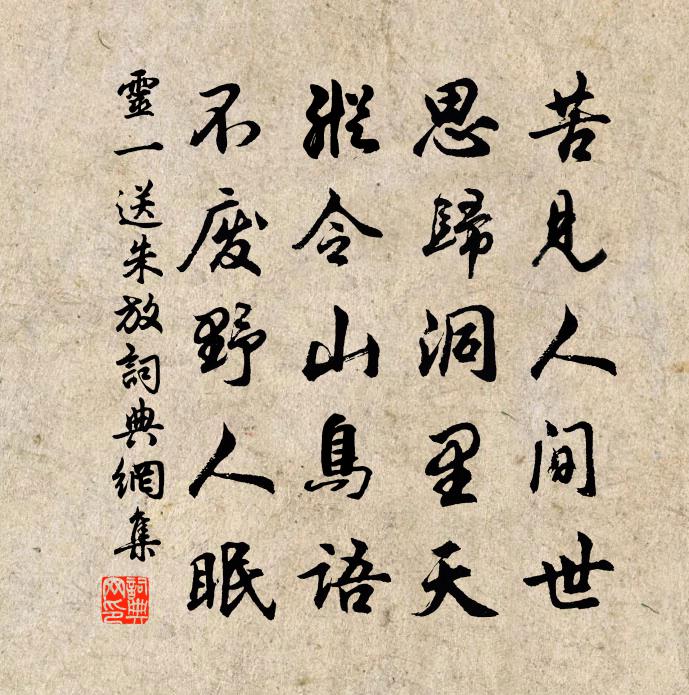 苦見人間世
思歸洞里天
縱令山鳥語
不废野人眠
靈一送朱放詞典網集
詞典網印